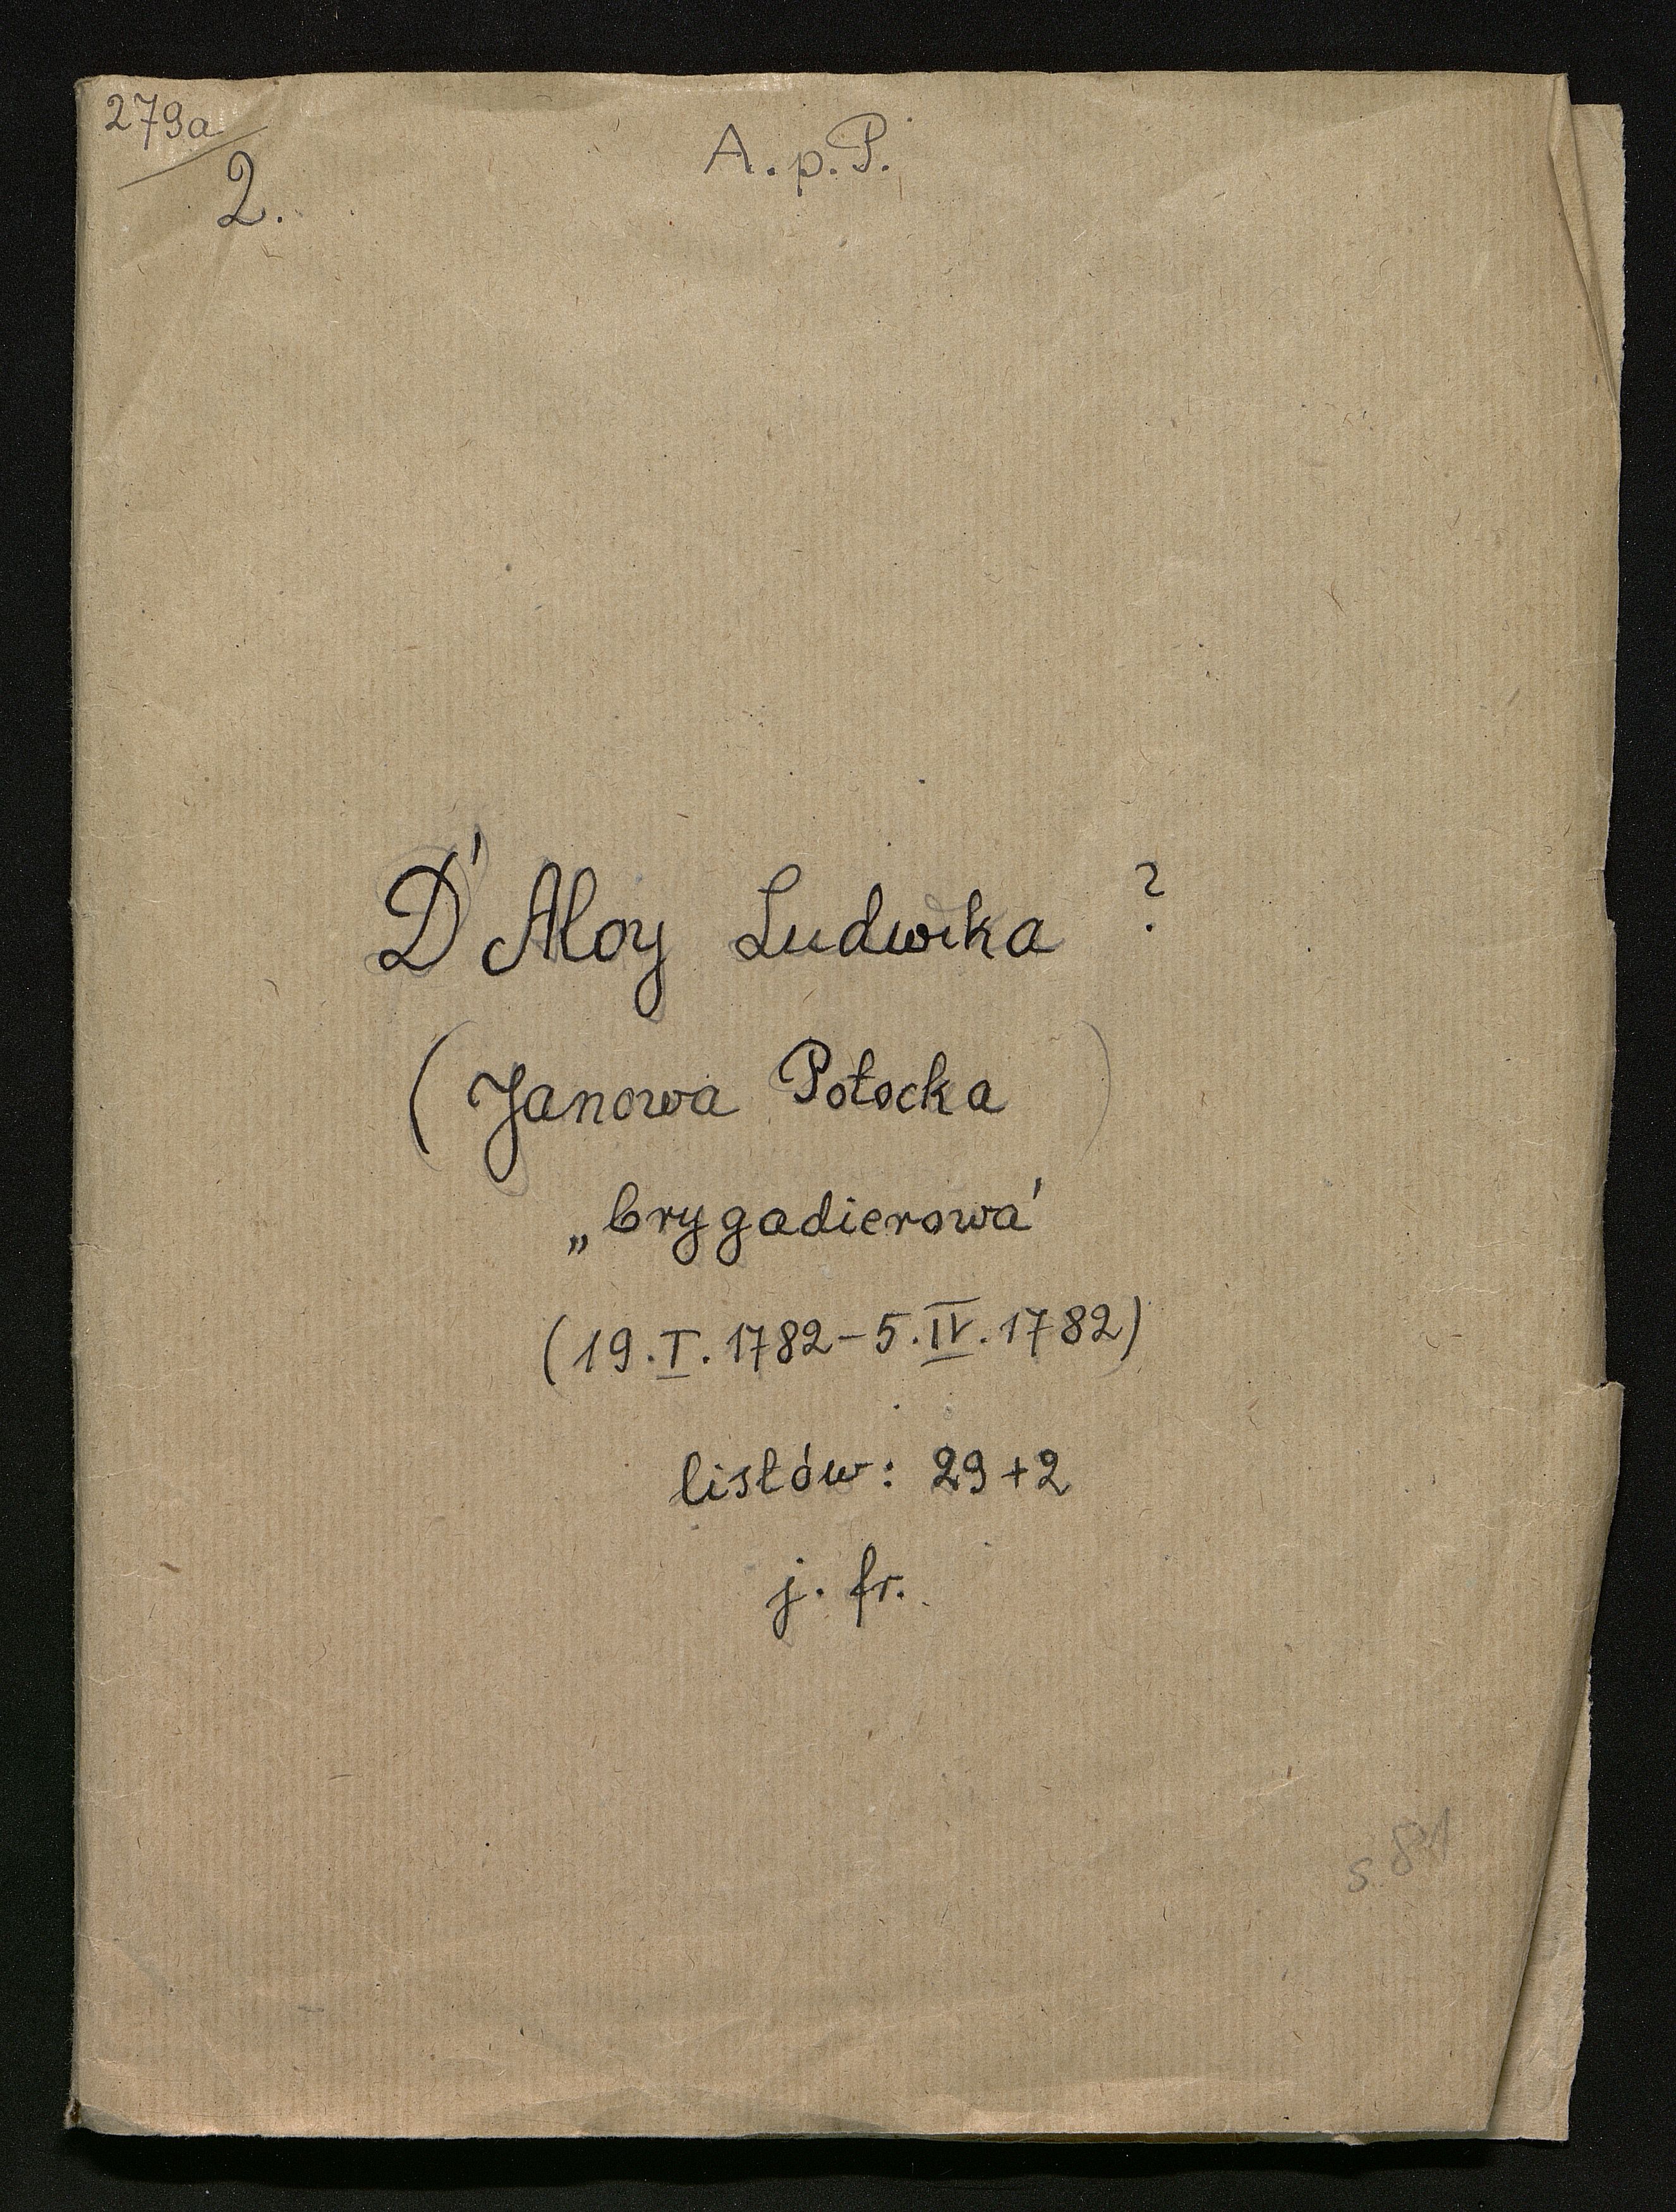 279a
2.
A.p.P.
D'Aloy Ludwika ?
(Janowa Potocka)
„brygadierowa"
(19.I.1782-5.IV.1782)
listów: 29+2
j. fr.
s. 81